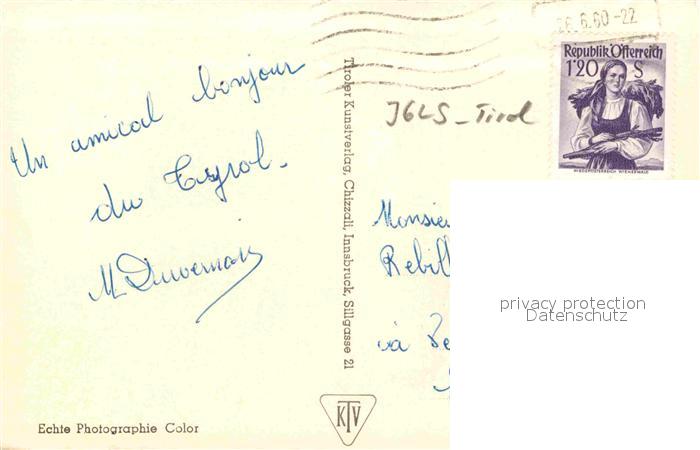 Un amical bonjour
du Tyrol.
M Duvernois
Echte Photographie Color
Tiroler Kunstverlag, Chizzali, Innsbruck, Sillgasse 21
KTV
6.6.60-22
Republik Österreich
1'20 S
NIEDERÖSTERREICH WIENERWALD
IGLS - Tirol
Monsie
Rebill
à
privacy protection
Datenschutz